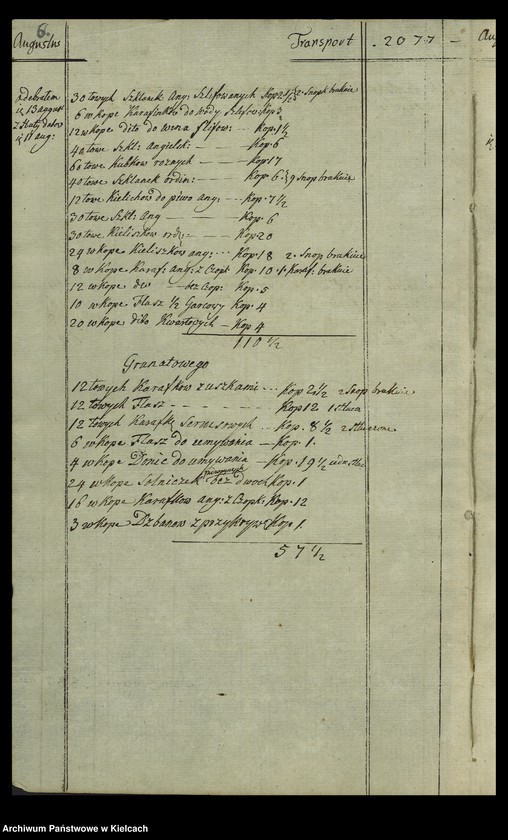 6.
Augustus Transport . 2077 —
odebrałem
30 towych Szklanek Ang: Szlifowanych Kop 2 1/2 2. Snopk brakuie
6 w kope Karafinków do wody Szlifow: Kop 3
12 w kope dito do wina szlifow: --- Kop. 1 1/2
40 towe Szkl: Angielsk: — — Kop. 6
60 towe Kubkow rożnych — — Kop 17
40 towe Szklanek ordin: — — Kop. 6. 9 Snop brakuie
12 towe Kielichow do piwo ang: -- Kop. 7 1/2
30 towe Szkl: Ang — — — Kop. 6
30 towe Kieliszkow ord: — — Kop 20
24 w kope Kieliszków ang: --- Kop. 18 2. Snop brakuie
8 w Kope Karaf: ang: z Czopk Kop. 10. 1. Karaf: brakuie
12 w kope dto — bez Czop: Kop. 5
10 w kope Flasz 1/2 Garcowy Kop. 4
20 w kope dito Kwartowych — Kop 4
110 1/2
Granatowego
12 towych Karafkow z uszkami --- Kop 2 1/2 2 Snop brakuie
12 towych Flasz - - - - - Kop 12
12 towych Karafk Serwisowych -- Kop. 8 1/2
6 w kope Flasz do umywania — Kop. 1.
4 w Kope Donic do umywania — Kop. 19 1/2
24 w kope Solniczek bez dwoch Kop. 1
16 w kope Karafkow ang: z Czopk: Kop. 12
3 w Kope Dzbanow z przykryw: Kop. 1
57 1/2
Archiwum Państwowe w Kielcach